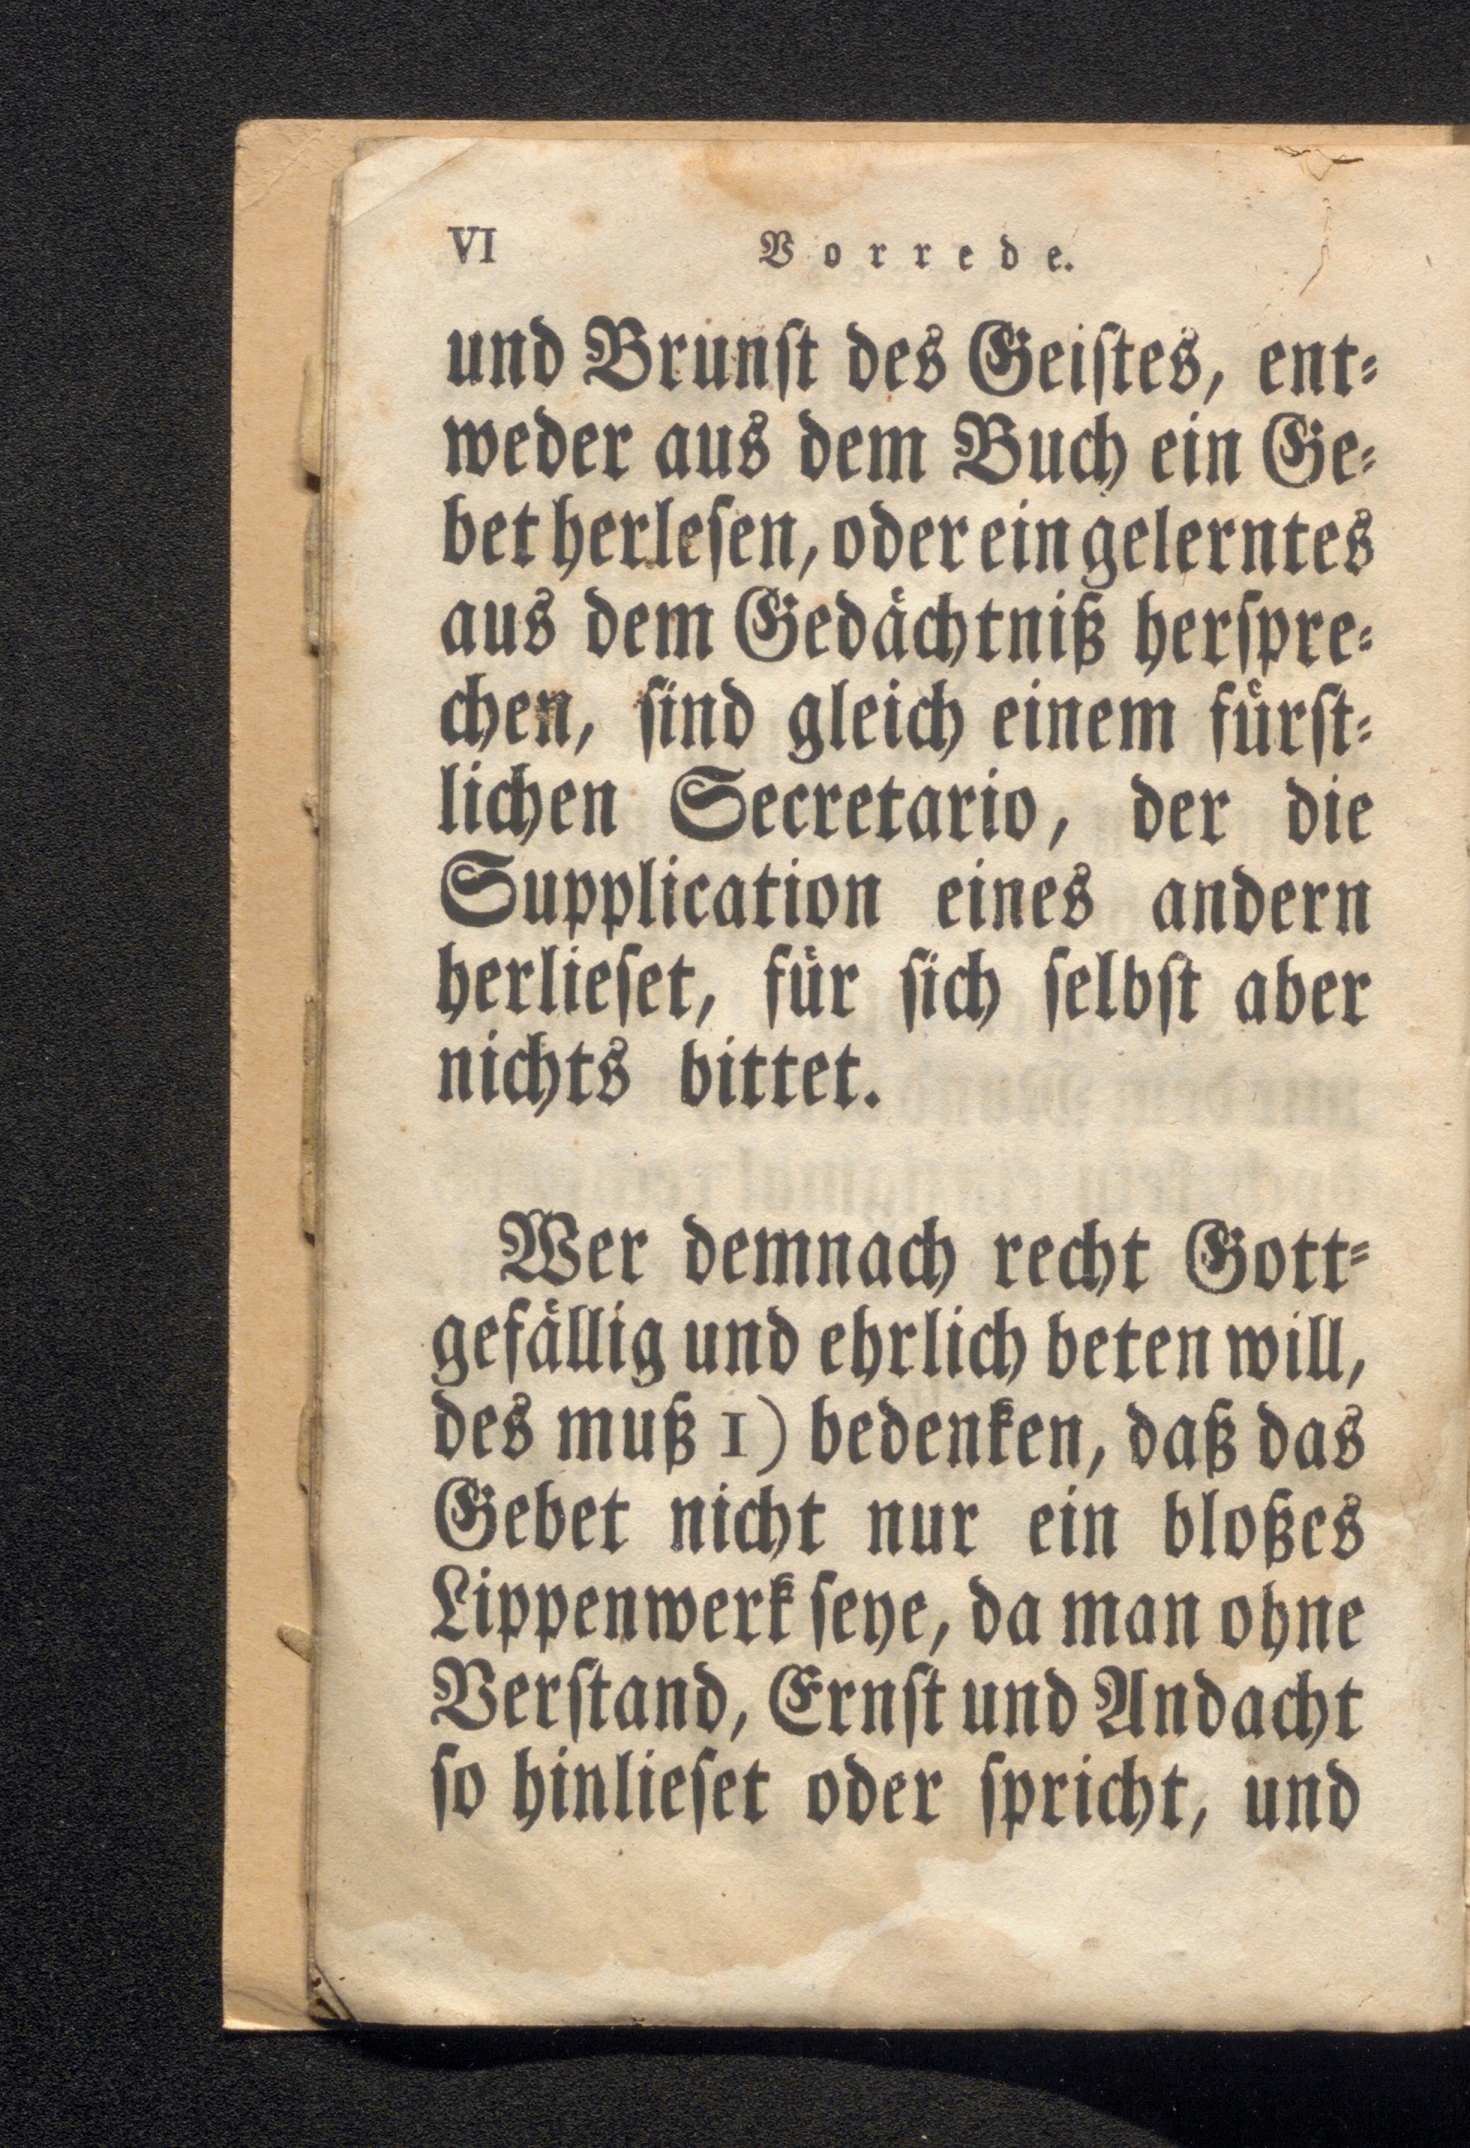 VI Vorrede.
und Brunſt des Geiſtes, ent⸗
weder aus dem Buch ein Ge⸗
bet herleſen, oder ein gelerntes
aus dem Gedaͤchtniß herſpre⸗
chen, ſind gleich einem fuͤrſt⸗
lichen Secretario, der die
Supplication eines andern
herlieſet, fuͤr ſich ſelbſt aber
nichts bittet.
Wer demnach recht Gott⸗
gefaͤllig und ehrlich beten will,
des muß 1) bedenken, daß das
Gebet nicht nur ein bloßes
Lippenwerk ſeye, da man ohne
Verſtand, Ernſt und Andacht
ſo hinlieſet oder ſpricht, und